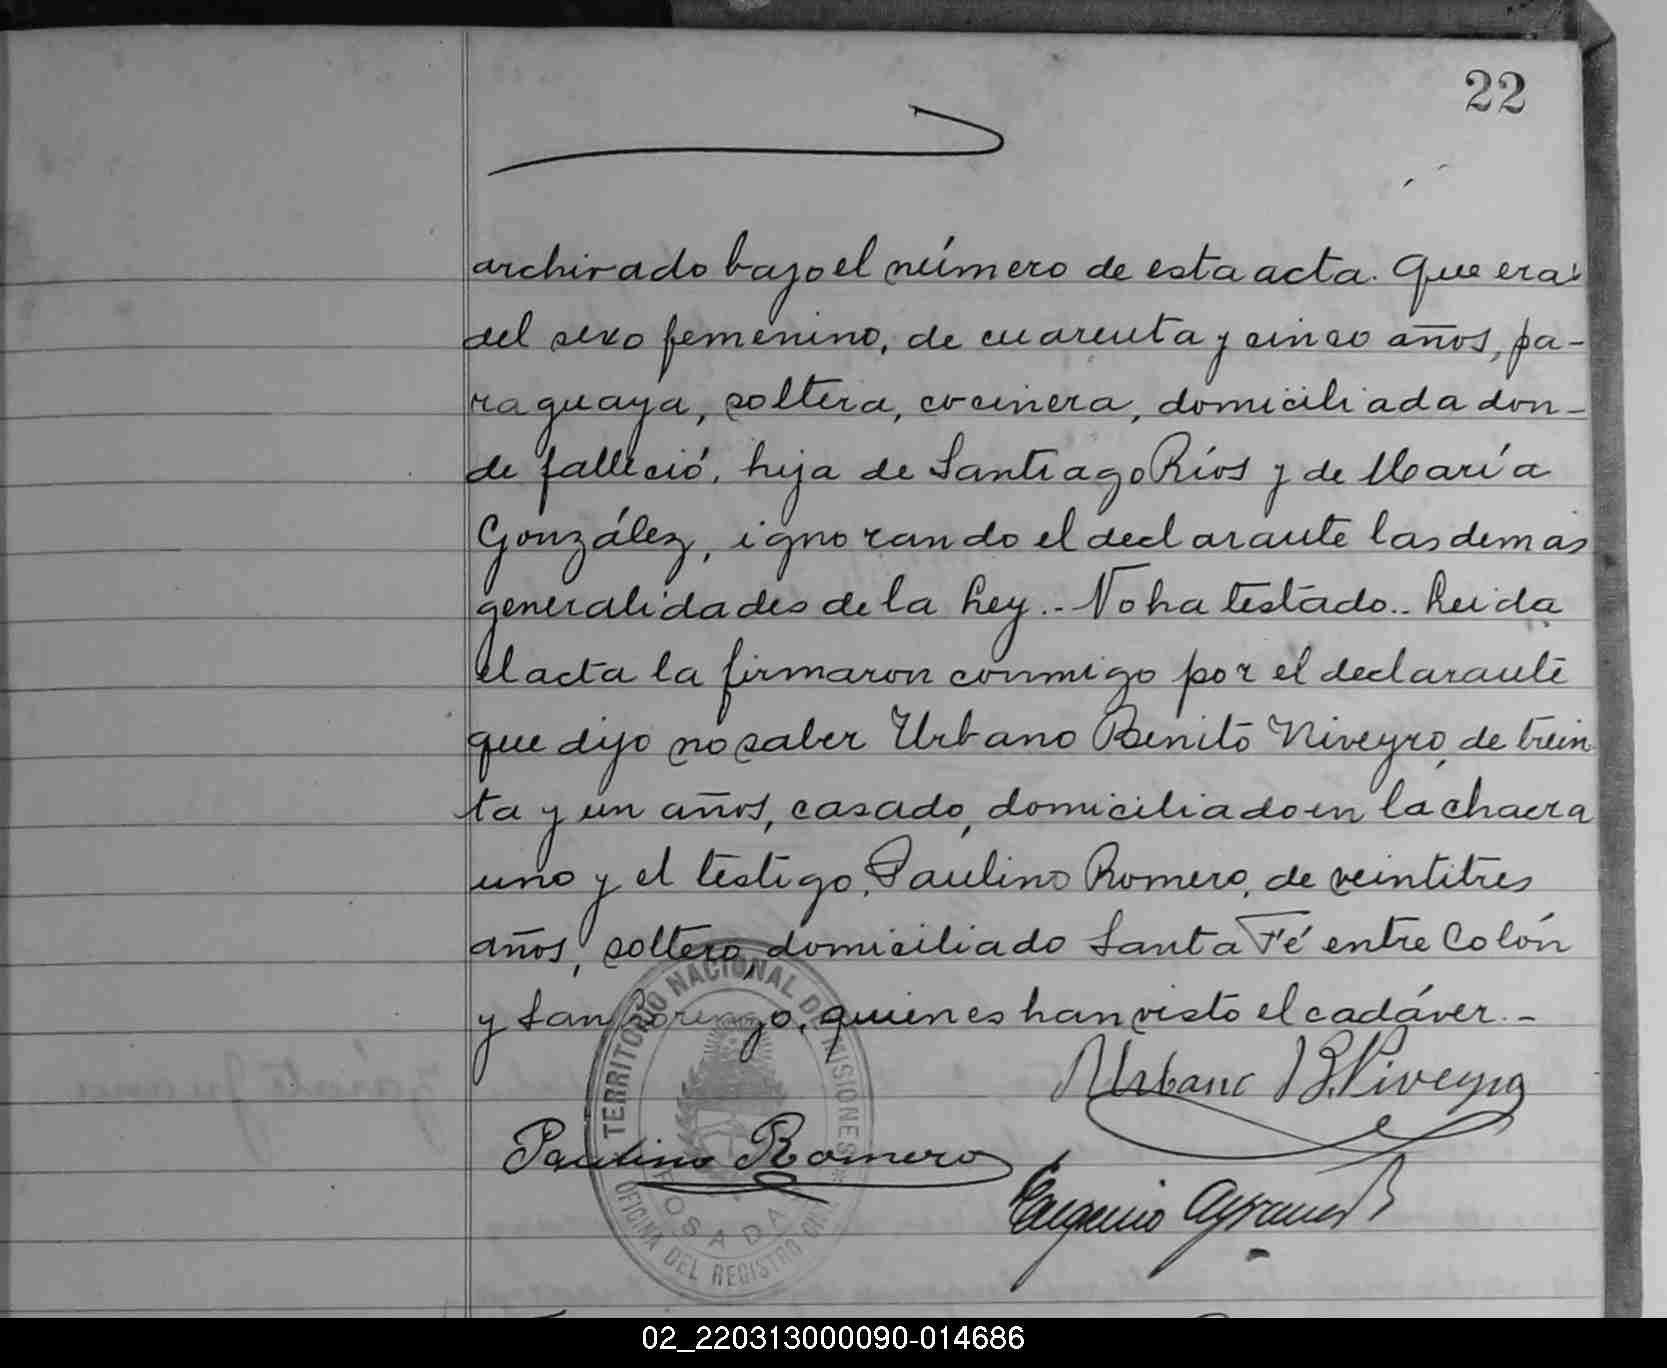 22
archivado bajo el número de esta acta. Que era
del sexo femenino, de cuarenta y cinco años, pa-
raguaya, soltera, cocinera, domiciliada don-
de falleció, hija de Santiago Ríos y de María
González, ignorando el declarante las demas
generalidades de la Ley.- No ha testado.- Leida
el acta la firmaron conmigo por el declarante
que dijo no saber Urbano Benito Niveyro, de trein
ta y un años, casado, domiciliado en la chacra
uno y el testigo, Paulino Romero, de veintitres
años, soltero, domiciliado Santa Fé entre Colón
y San Lorenzo, quienes han visto el cadáver.-
Urbano B. Niveyro
Paulino Romero
Eugenio
TERRITORIO NACIONAL DE MISIONES
POSADAS
OFICINA DEL REGISTRO CIVIL
02_220313000090-014686